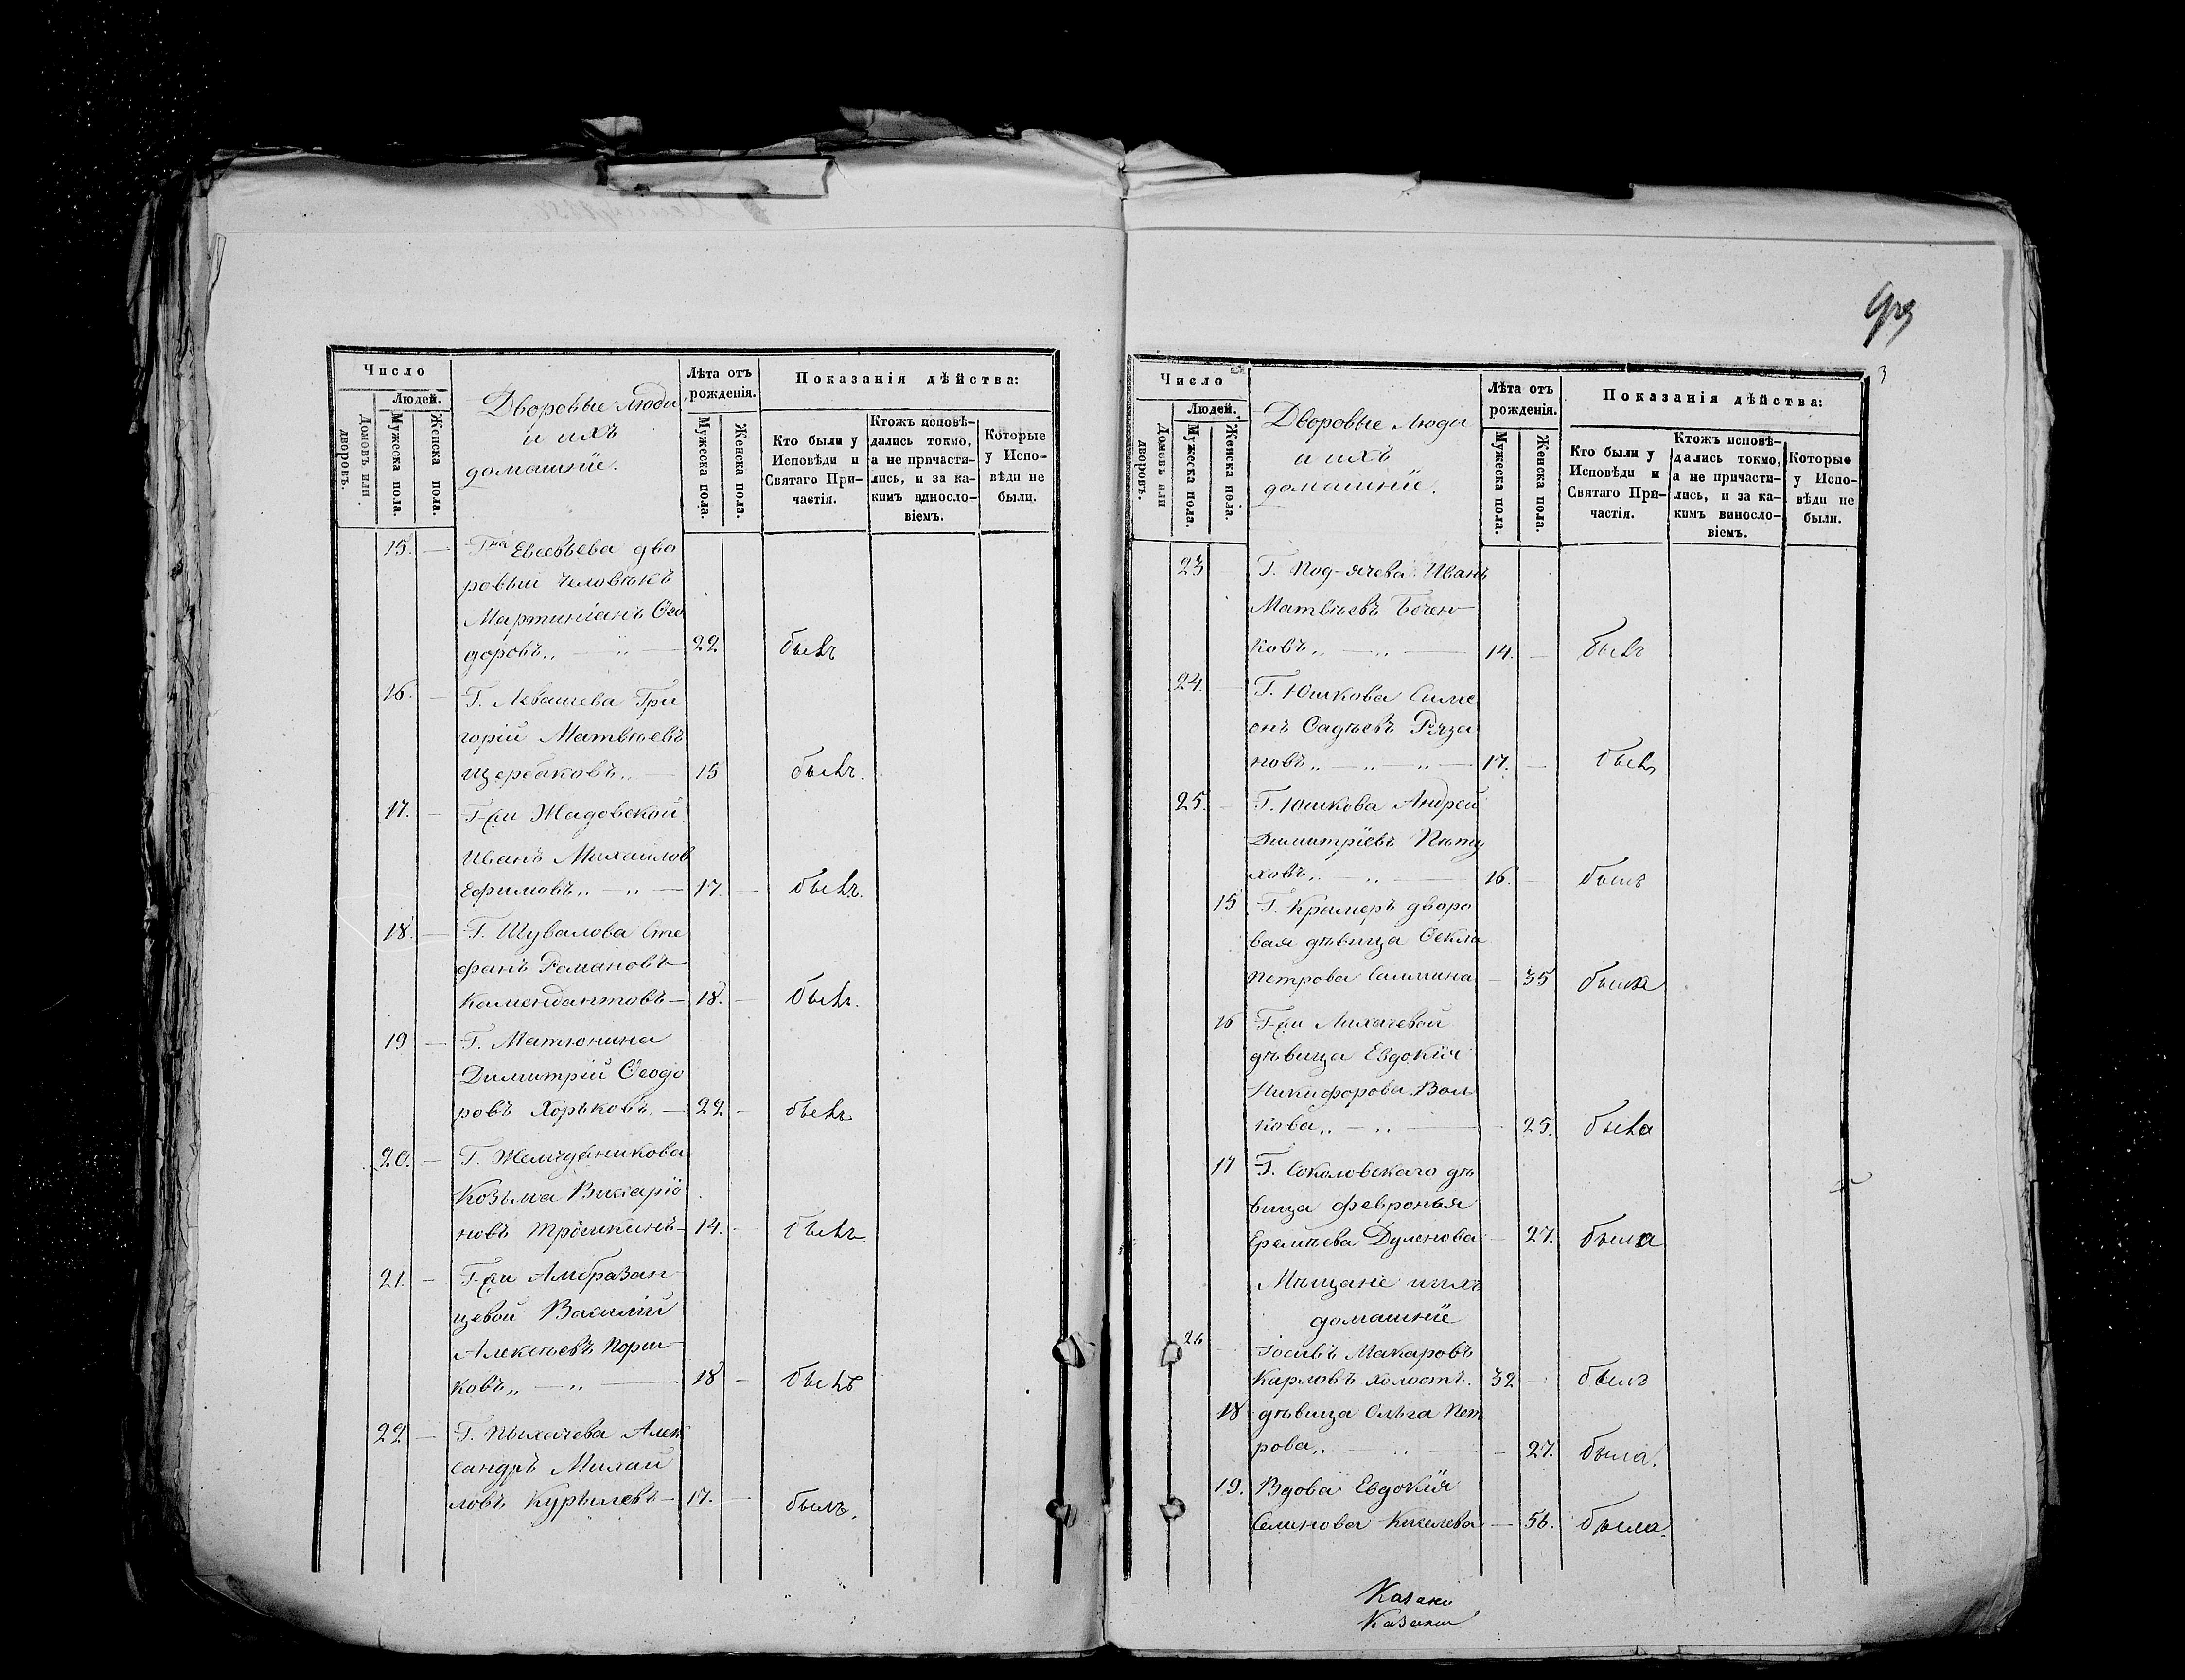 Число
Людей.
Домовъ или дворовъ.
Мужеска пола.
Женска пола.
Дворовые люди
и ихъ
домашніе.
Лѣта отъ
рожденія.
Мужеска пола.
Женска пола.
Показанія дѣйства:
Кто были у
Исповѣди и
Святаго При-
частія.
Ктожъ исповѣ-
дались токмо,
а не причасти-
лись, и за ка-
кимъ винosло-
віемъ.
Которые
у Испо-
вѣди не
были.
15. — Гна Евсевьева дво
ровый человѣкъ
Мартиніанъ Ѳео
доровъ „ — „ — 22 былъ
16. — Г. Левашева Гри
горій Матвѣевъ
Щербаковъ „ — 15 былъ.
17. — Г-жи Жадовской
Иванъ Михаиловъ
Ефимовъ „ — „ — 17. — былъ.
18. — Г. Шувалова Сте
фанъ Романовъ
Комендантовъ — 18. — былъ.
19 — Г. Матюнина
Димитрій Ѳеодо
ровъ Хорьковъ. — 22 — былъ
20. — Г. Жемчужникова
Козьма Викаріо
новъ Трошкинъ — 14. — былъ.
21. — Г-жи Амбразан
цевой Василій
Алексѣевъ Порш
ковъ „ — „ — 18 — былъ
22 — Г. Пыхачева Алек
сандръ Михаи
ловъ Курылевъ — 17. — былъ.
3
Число
Людей.
Домовъ или дворовъ.
Мужеска пола.
Женска пола.
Дворовые люди
и ихъ
домашніе.
Лѣта отъ
рожденія.
Мужеска пола.
Женска пола.
Показанія дѣйства:
Кто были у
Исповѣди и
Святаго При-
частія.
Ктожъ исповѣ-
дались токмо,
а не причасти-
лись, и за ка-
кимъ виносло-
віемъ.
Которые
у Испо-
вѣди не
были.
23 Г. Под-ячева Иванъ
Матвѣевъ Бочен
ковъ „ — „ — 14. — былъ
24. Г. Юшкова Симе
онъ Садѣевъ Ряза
новъ „ — „ — „ — 17. — былъ
25. Г. Юшкова Андрей
Димитріевъ Пѣту
ховъ „ — „ — 16. — былъ
15 Г. Крамеръ дворо
вая дѣвица Ѳекла
Петрова — 35 была
16 Г-жи Лихачевой
дѣвица Евдокія
Никифорова Вол
кова „ — „ — 25. была
17 Г. Соколовскаго дѣ
вица Февронья
Еремѣева Дуленова — 27. была
Мѣщане и ихъ
домашніе
26 Іосивъ Макаровъ
Карловъ холостъ. — 32 — былъ
18 дѣвица Ольга Пет
рова „ „ — 27. была.
19. Вдова Евдокія
Семенова Киселева — 56. была.
Казаки
Казаки